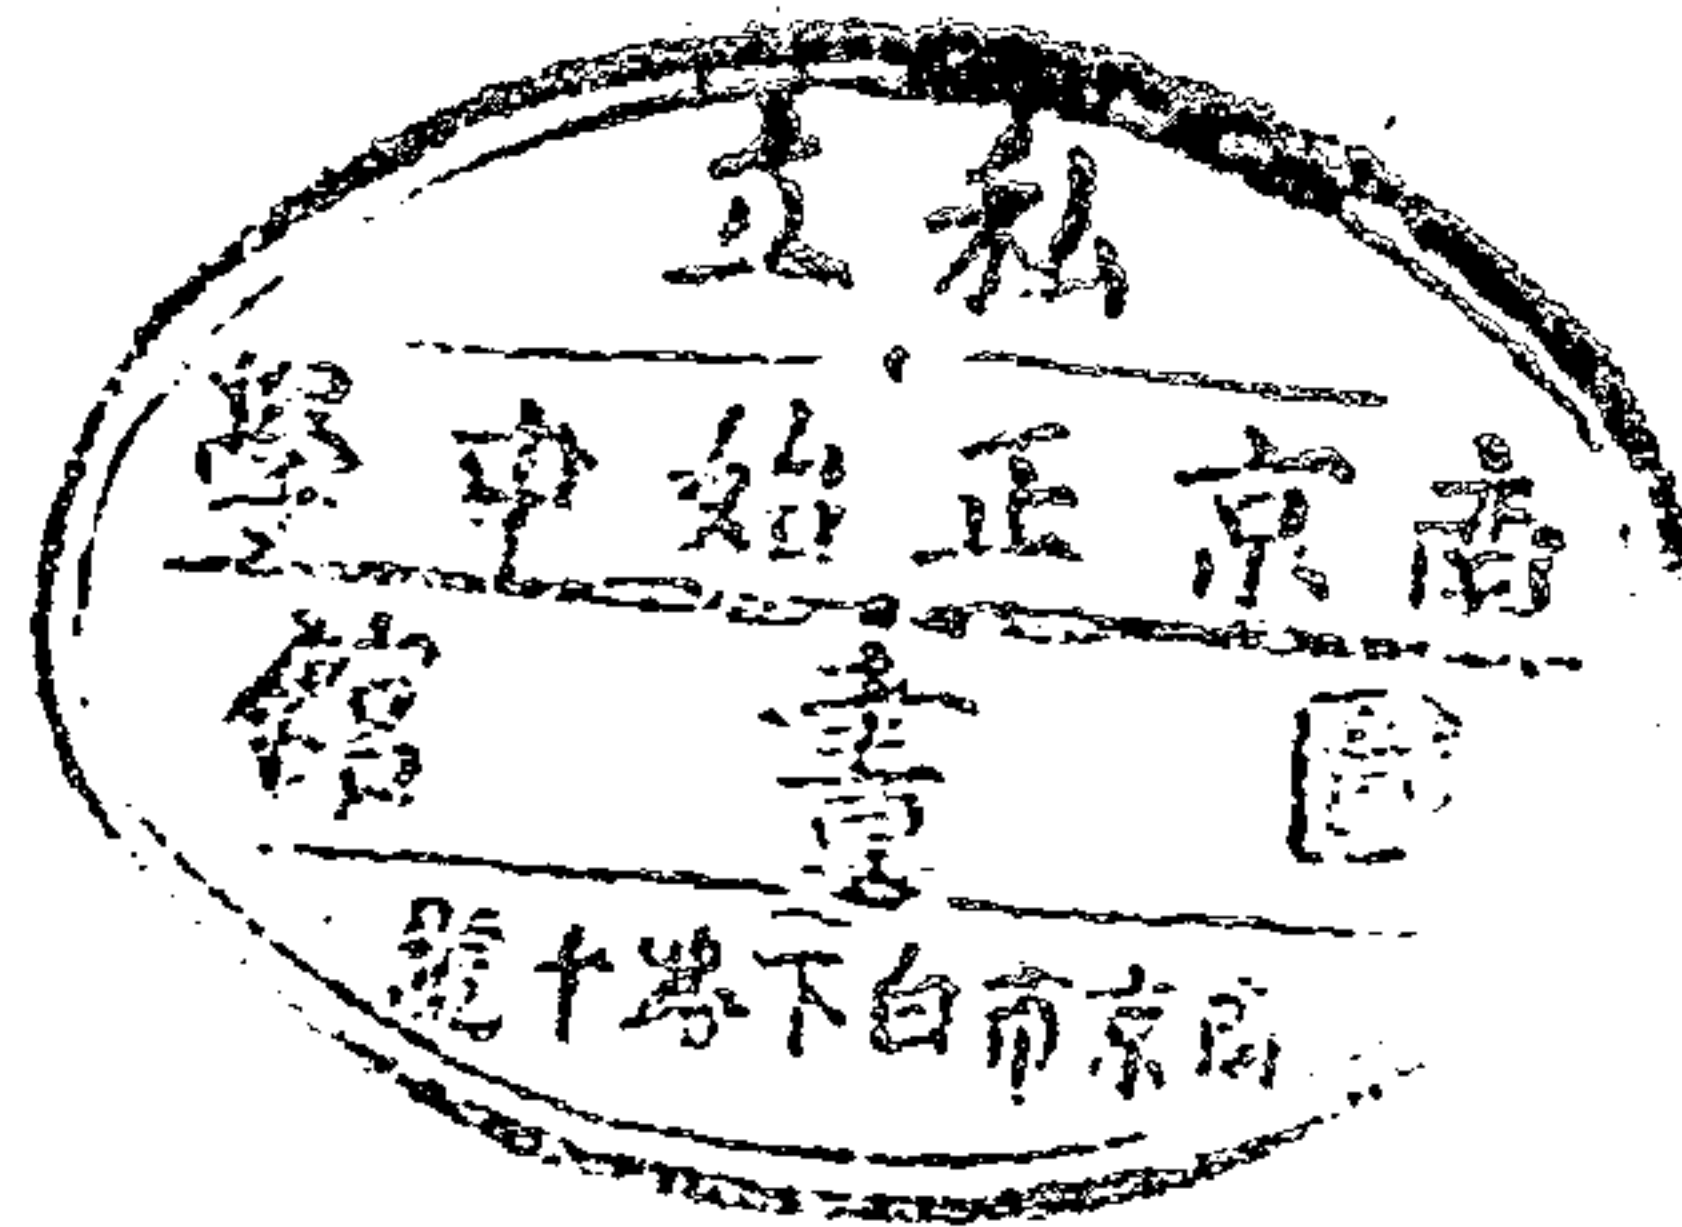 私立
南京正始中學
圖書館
南京市白下路十號